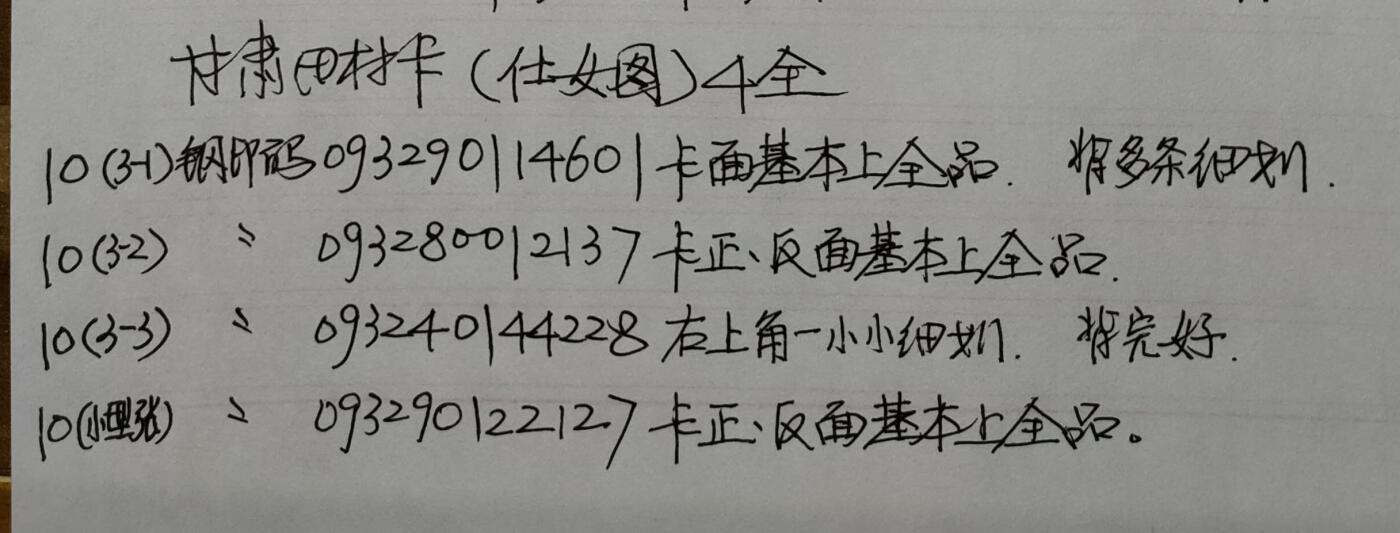 甘肃田村卡(仕女图)4全
10(3-1)钢印码093290114601卡面基本上全品. 背多条细划.
10(3-2) 〃 093280012137卡正、反面基本上全品.
10(3-3) 〃 093240144228右上角一小小细划. 背完好.
10(小型张) 〃 093290122127卡正、反面基本上全品。